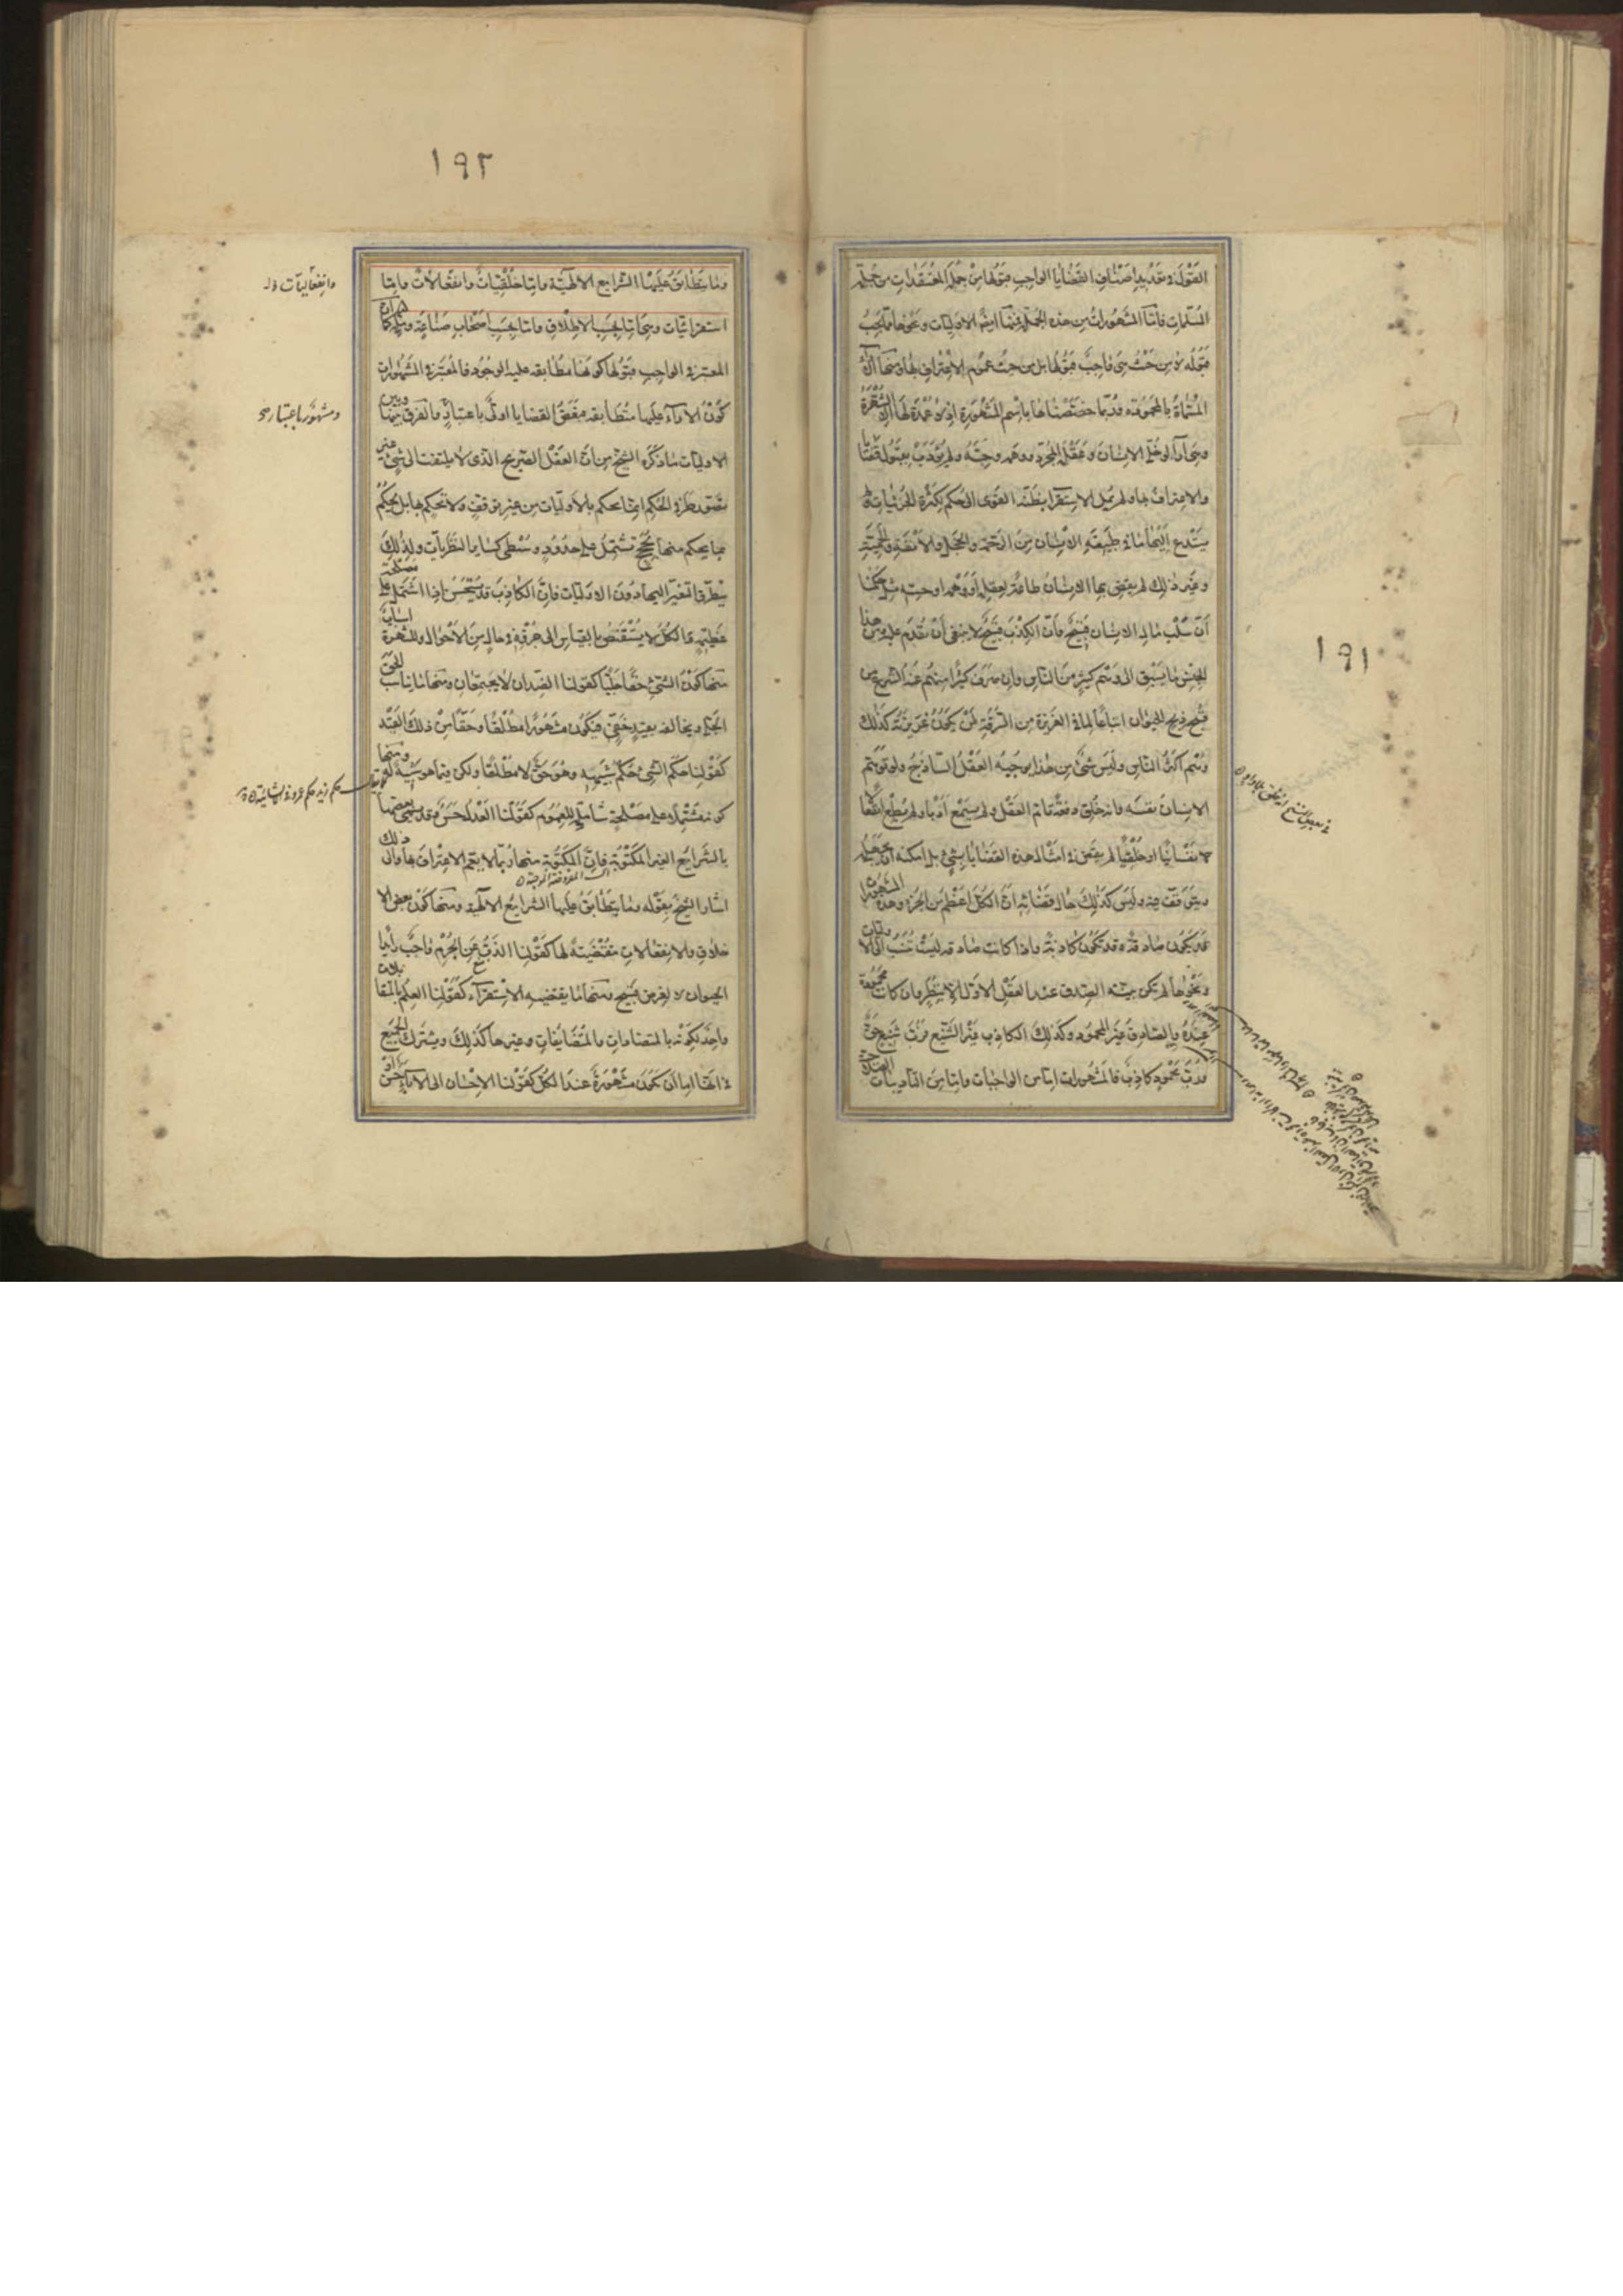 ١٩١
القول في تعديد أصناف القضايا الواجب قبولها من جملة المعتقدات من جملة
المسلمات فأما المشهورات من هذه الجملة فمنها أيضا الأوليات ونحوها مما يجب
قبوله لا من حيث هي واجب قبولها بل من حيث عموم الاعتراف بها ومنها الآراء
المسماة بالمحمودة وربما خصصناها باسم المشهورة إذ لا عمدة لها إلا الشهرة
وهي آراء لو خلي الإنسان وعقله المجرد ووهمه وحسه ولم يؤدب بقبول قضايا
والاعتراف بها ولم يمل الاستقراء بظنه القوي إلى حكم لكثرة الجزئيات ولم
يستدع إليها ما في طبيعة الإنسان من الرحمة والخجل والأنفة والحمية
وغير ذلك لم يقض بها الإنسان طاعة لعقله أو وهمه أو حسه مثل حكمنا
أن سلب مال الإنسان قبيح وأن الكذب قبيح لا ينبغي أن نقدم عليه ومن هذا
الجنس ما يسبق إلى وهم كثير من الناس وإن صرف كثيرا منهم عنه الشرع من
قبح ذبح الحيوان اتباعا لما في الغريزة من الرقة لمن يكون غريزته كذلك
وهم أكثر الناس وليس شيء من هذا يوجبه العقل الساذج ولو توهم
الإنسان نفسه وأنه خلق دفعة تام العقل ولم يسمع أدبا ولم يطع انفعالا
نفسانيا أو خلقيا لم يقض في أمثال هذه القضايا بشيء بل أمكنه أن يجهله
ويتوقف فيه وليس كذلك حال قضائه أن الكل أعظم من الجزء وهذه المشهورات
قد يكون صادقة وقد تكون كاذبة وإذا كانت صادقة ليست تنسب إلى الأوليات
ونحوها لم تكن بينة الصدق عند العقل الأول إلا بنظر وإن كانت محمودة
عنده والصادق غير المحمود وكذلك الكاذب غير الشنيع فرب شنيع حق
ورب محمود كاذب فالمشهورات إما من الواجبات وإما من التأديبات الصلاحية
١٩٢
وما يتطابق عليها الشرايع الإلهية وإما خلقيات وانفعالات وإما
وانفعاليات
استقرائيات وهي إما بحسب الإطلاق وإما بحسب أصحاب صناعة وملة كما أن
المعتبر في الواجب قبولها كونها مطابقة عليه الوجود فالمعتبر في المشهورات
كون الآراء عليها متطابقة فبعض القضايا أولى باعتبار والفرق بينها وبين
ومشهور باعتبار
الأوليات ما ذكره الشيخ من أن العقل الصريح الذي لا يلتفت إلى شيء غير
تصور طرفي الحكم إنما يحكم بالأوليات من غير توقف ولا تحكم بها بل يحكم
بما يحكم منها بحجج تشتمل على حدود وسطى كساير النظريات ولذلك
يتطرق التغير إليها دون الأوليات فإن الكاذب قد يستحسن إذا اشتمل على مصلحة
عظيمة والكل لا يستصغر بالقياس إلى جزئه في حال من الأحوال وللشهرة أسباب
منها كون الشيء حقا جليا كقولنا الضدان لا يجتمعان ومنها ما يناسب الحق
الجلي ويخالفه بقيد خفي فيكون مشهورا مطلقا وحقا من ذلك القيد
كقولنا حكم الشيء حكم شبيهه وهو حق لا مطلقا ولكن فيما هو شبيه له ومنها
كونه مشتملا على مصلحة شاملة للعموم كقولنا العدل حسن وقد يسمى بعضها
بالشرايع الغير المكتوبة فإن المكتوبة منها ربما لا يعم الاعتراف بها وإلى ذلك
أشار الشيخ بقوله وما يتطابق عليها الشرايع الإلهية ومنها كون بعض الأ
خلاق والانفعالات مقتضية لها كقولنا الذب عن الحرم واجب وإيذاء
الحيوان لا لغرض قبيح ومنها ما يقتضيه الاستقراء كقولنا العلم بالمتقابلات
واحد لكونه بالمتضادات والمتضايفات وغيرها كذلك ويشترك الجميع
في أنها إما أن تكون مشهورة عند الكل كقولنا الإحسان إلى الآباء حسن أو